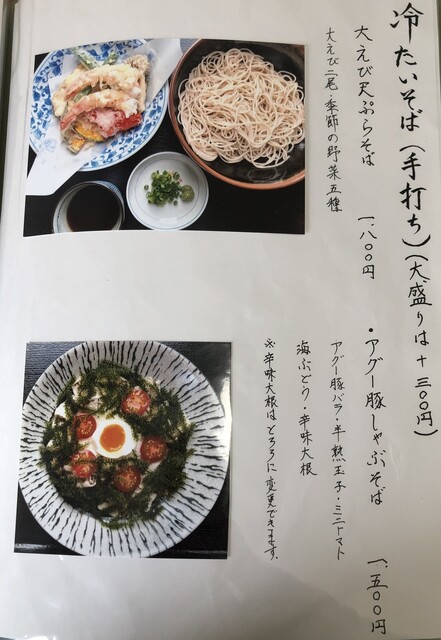 冷たいそば(手打ち)(大盛りは+三00円)
大えび天ぷらそば 一、八〇〇円
大えび二尾・季節の野菜五種
・アグー豚しゃぶそば 一、五〇〇円
アグー豚バラ・半熟玉子・ミニトマト
海ぶどう・辛味大根
※辛味大根はとろろに変更できます。